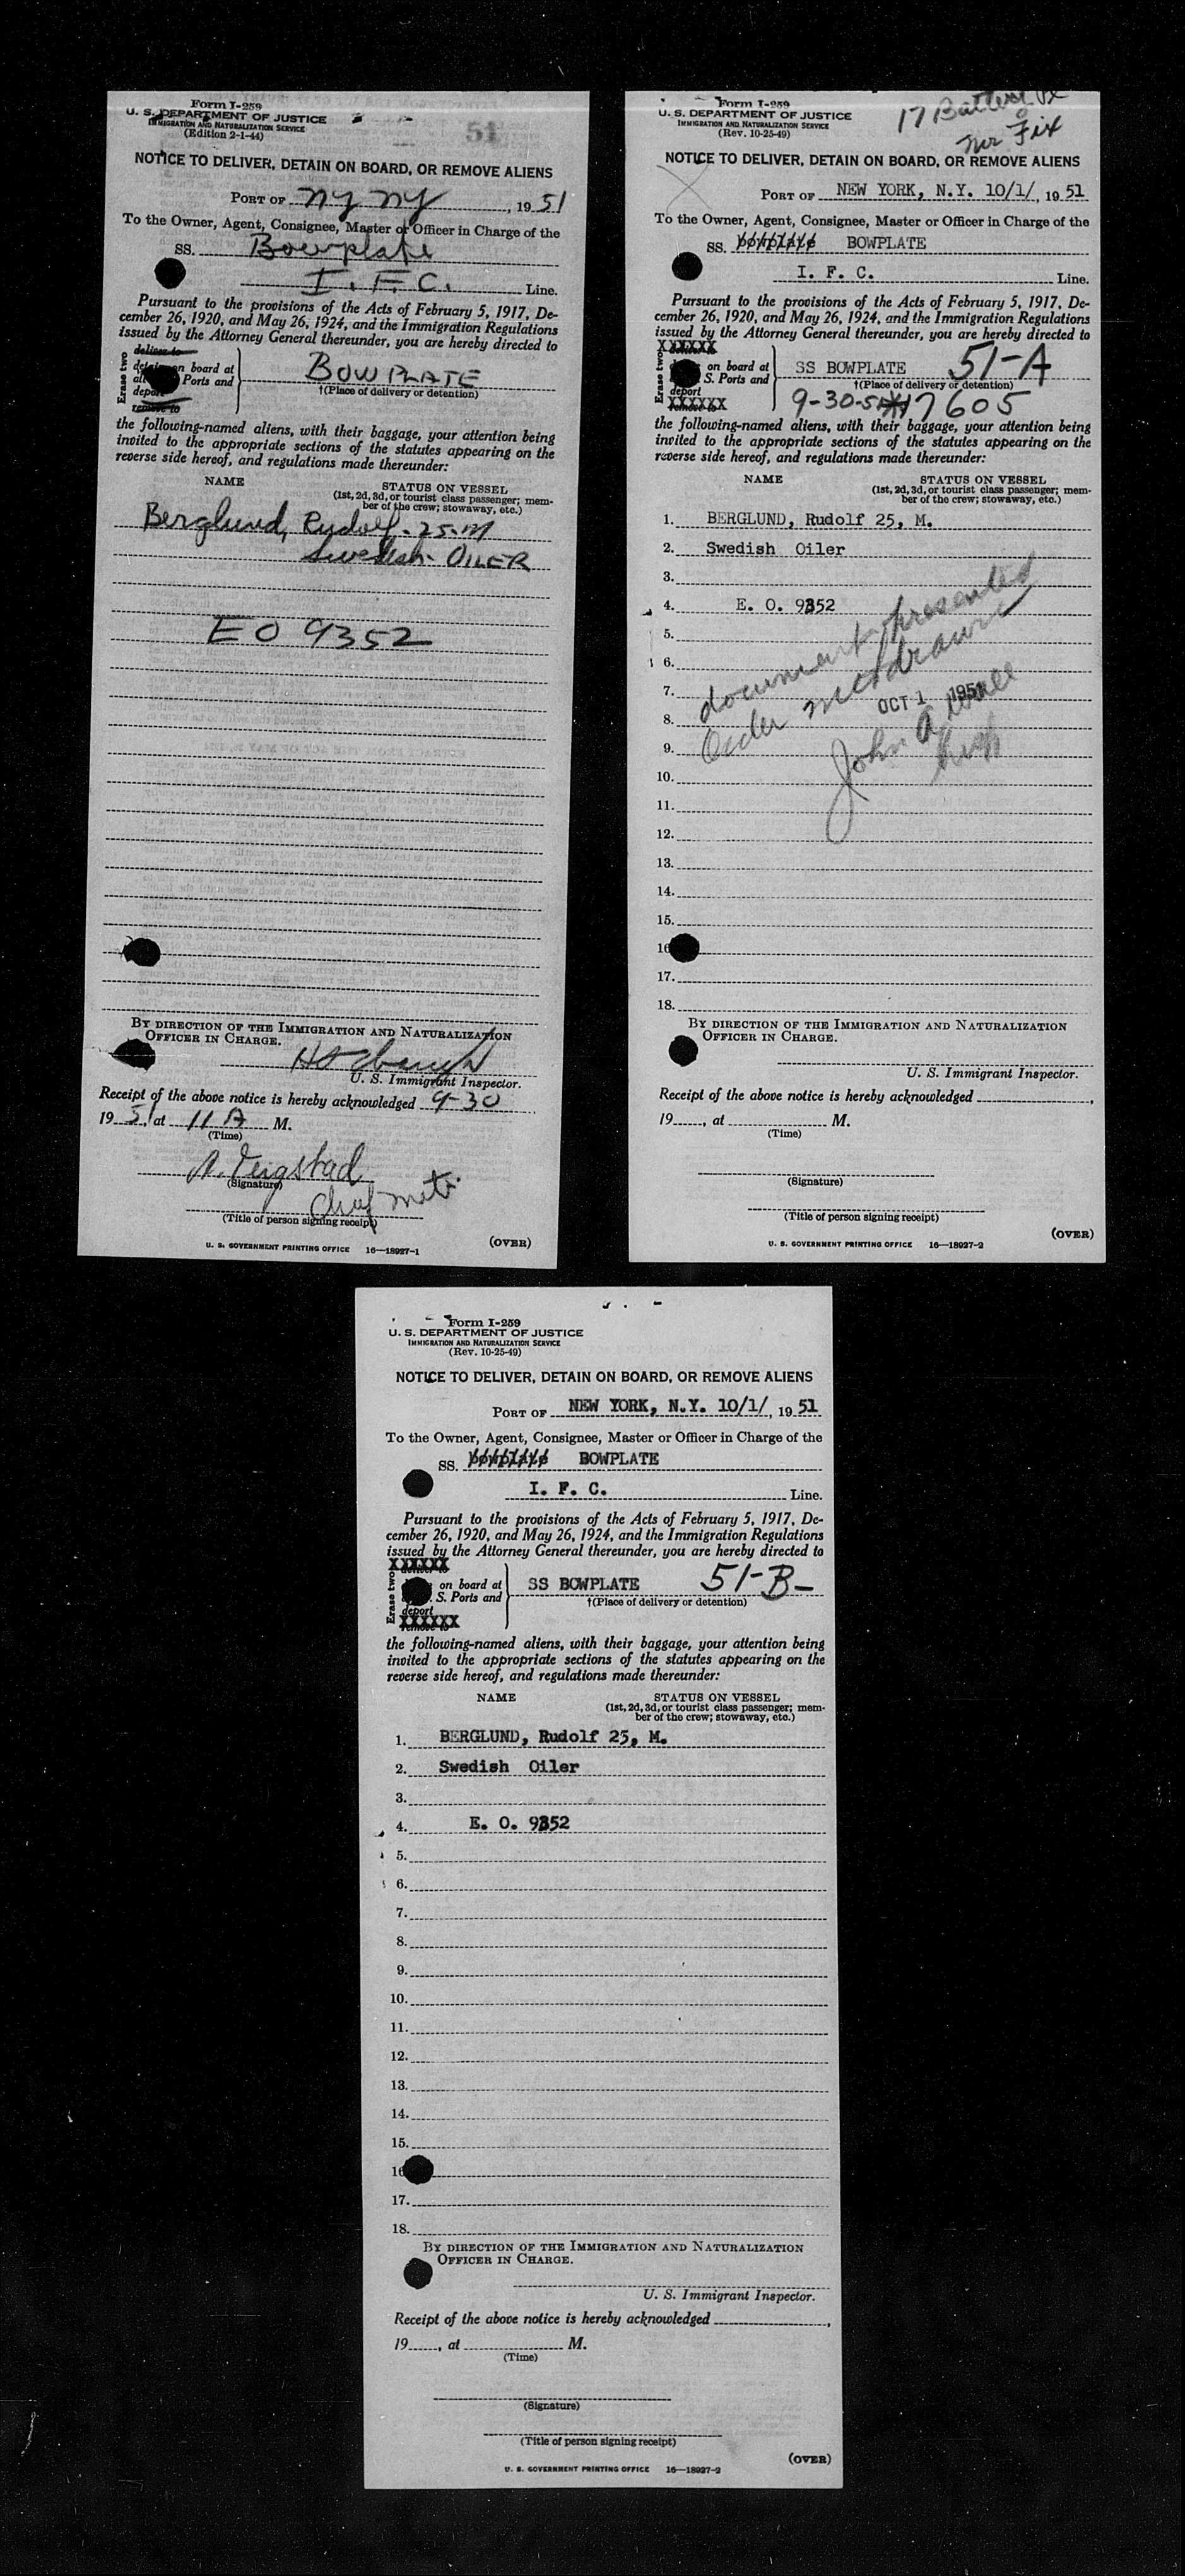 Form I-259
U. S. DEPARTMENT OF JUSTICE
IMMIGRATION AND NATURALIZATION SERVICE
(Edition 2-1-44)
51
NOTICE TO DELIVER, DETAIN ON BOARD, OR REMOVE ALIENS
PORT OF NY NY, 1951
To the Owner, Agent, Consignee, Master or Officer in Charge of the
SS. Bowplate
I. F. C. Line.
Pursuant to the provisions of the Acts of February 5, 1917, De-
cember 26, 1920, and May 26, 1924, and the Immigration Regulations
issued by the Attorney General thereunder, you are hereby directed to
Erase two
deliver to
on board at
Ports and
deport
remove to
BOWPLATE
†(Place of delivery or detention)
the following-named aliens, with their baggage, your attention being
invited to the appropriate sections of the statutes appearing on the
reverse side hereof, and regulations made thereunder:
NAME STATUS ON VESSEL
(1st, 2d, 3d, or tourist class passenger; mem-
ber of the crew; stowaway, etc.)
Berglund, Rudolf. 25. M
Swedish OILER
E O 9352
BY DIRECTION OF THE IMMIGRATION AND NATURALIZATION
OFFICER IN CHARGE.
U. S. Immigrant Inspector.
Receipt of the above notice is hereby acknowledged 9-30
1951, at 11 A M.
(Time)
(Signature)
Chief mate
(Title of person signing receipt)
(OVER)
U. S. GOVERNMENT PRINTING OFFICE 16—18927-1
Form I-259
U. S. DEPARTMENT OF JUSTICE
IMMIGRATION AND NATURALIZATION SERVICE
(Rev. 10-25-49)
17 Battery Pl
Mr Fix
NOTICE TO DELIVER, DETAIN ON BOARD, OR REMOVE ALIENS
PORT OF NEW YORK, N.Y. 10/1/, 1951
To the Owner, Agent, Consignee, Master or Officer in Charge of the
SS. bowplate BOWPLATE
I. F. C. Line.
Pursuant to the provisions of the Acts of February 5, 1917, De-
cember 26, 1920, and May 26, 1924, and the Immigration Regulations
issued by the Attorney General thereunder, you are hereby directed to
Erase two
XXXXXX
on board at
S. Ports and
deport
XXXXXX
SS BOWPLATE 51-A
†(Place of delivery or detention)
9-30-51 17605
the following-named aliens, with their baggage, your attention being
invited to the appropriate sections of the statutes appearing on the
reverse side hereof, and regulations made thereunder:
NAME STATUS ON VESSEL
(1st, 2d, 3d, or tourist class passenger; mem-
ber of the crew; stowaway, etc.)
1. BERGLUND, Rudolf 25, M.
2. Swedish Oiler
3.
4. E. O. 9352
5.
6.
7.
8.
9.
10.
11.
12.
13.
14.
15.
16
17.
18.
document presented
Order withdrawn
OCT 1 1951
John A
BY DIRECTION OF THE IMMIGRATION AND NATURALIZATION
OFFICER IN CHARGE.
U. S. Immigrant Inspector.
Receipt of the above notice is hereby acknowledged
19, at M.
(Time)
(Signature)
(Title of person signing receipt)
(OVER)
U. S. GOVERNMENT PRINTING OFFICE 16—18927-2
Form I-259
U. S. DEPARTMENT OF JUSTICE
IMMIGRATION AND NATURALIZATION SERVICE
(Rev. 10-25-49)
NOTICE TO DELIVER, DETAIN ON BOARD, OR REMOVE ALIENS
PORT OF NEW YORK, N.Y. 10/1/, 1951
To the Owner, Agent, Consignee, Master or Officer in Charge of the
SS. bowplate BOWPLATE
I. F. C. Line.
Pursuant to the provisions of the Acts of February 5, 1917, De-
cember 26, 1920, and May 26, 1924, and the Immigration Regulations
issued by the Attorney General thereunder, you are hereby directed to
Erase two
XXXXXX
on board at
S. Ports and
deport
XXXXXX
SS BOWPLATE 51-B-
†(Place of delivery or detention)
the following-named aliens, with their baggage, your attention being
invited to the appropriate sections of the statutes appearing on the
reverse side hereof, and regulations made thereunder:
NAME STATUS ON VESSEL
(1st, 2d, 3d, or tourist class passenger; mem-
ber of the crew; stowaway, etc.)
1. BERGLUND, Rudolf 25, M.
2. Swedish Oiler
3.
4. E. O. 9352
5.
6.
7.
8.
9.
10.
11.
12.
13.
14.
15.
16
17.
18.
BY DIRECTION OF THE IMMIGRATION AND NATURALIZATION
OFFICER IN CHARGE.
U. S. Immigrant Inspector.
Receipt of the above notice is hereby acknowledged
19, at M.
(Time)
(Signature)
(Title of person signing receipt)
(OVER)
U. S. GOVERNMENT PRINTING OFFICE 16—18927-2